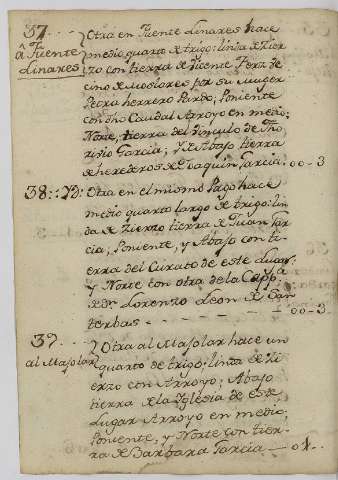 37
â Fuente
Linares
Otra en Fuente Linares hace
medio quarto de trigo: linda de Zier
zo con tierra de Vicente Ferz de
cino de Moslores por su Muger
Petra herrero Pardo; Poniente
con dho Caudal Arroyo en medio;
Norte, tierra del Vinculo de Tho
rivio Garcia; y de Abajo tierra
de herederos de Joaquin Garcia. 00-3
38:: Otra en el mismo Pago hace
medio quarto largo de trigo: lin
da de Zierzo tierra de Juan Gar
cia; Poniente, y Abajo con ti
erra del Curato de este Lugar,
y Norte con otra de la Capp.a
de dn Lorenzo Leon de San
terbas - - - - - - - 00-3
39
al Majolar
Otra al Majolar hace un
quarto de trigo: linda de Zi
erzo con Arroyo; Abajo
tierra de la Iglesia de este
Lugar Arroyo en medio;
Poniente, y Norte con tier
ra de Barbara Garcia — 01